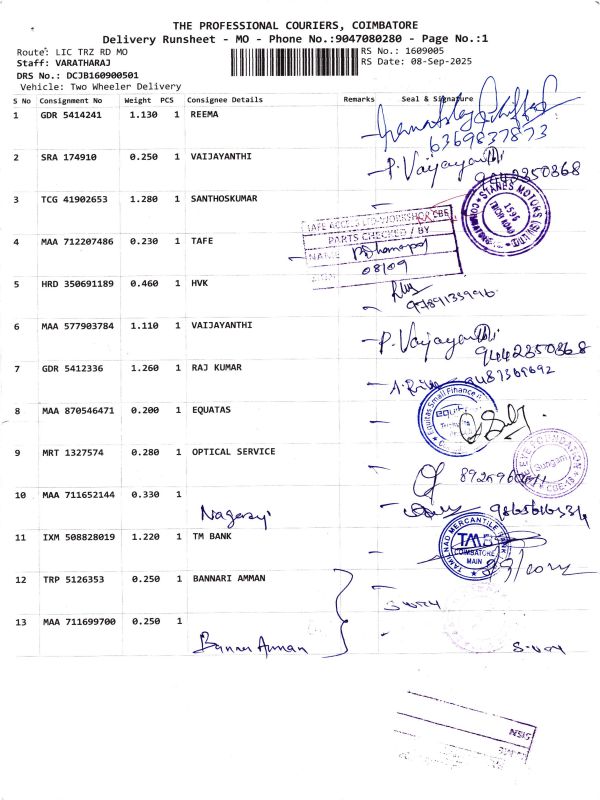 THE PROFESSIONAL COURIERS, COIMBATORE
Delivery Runsheet - MO - Phone No.:9047080280 - Page No.:1
Route: LIC TRZ RD MO RS No.: 1609005
Staff: VARATHARAJ RS Date: 08-Sep-2025
DRS No.: DCJB160900501
Vehicle: Two Wheeler Delivery
S No Consignment No Weight PCS Consignee Details Remarks Seal & Signature
1 GDR 5414241 1.130 1 REEMA
6369837873
2 SRA 174910 0.250 1 VAIJAYANTHI P. Vaijayanthi
9442350368
3 TCG 41902653 1.280 1 SANTHOSKUMAR
STANES MOTORS
PARTS CHECKED / BY
NAME
4 MAA 712207486 0.230 1 TAFE
08/09
5 HRD 350691189 0.460 1 HVK
6 MAA 577903784 1.110 1 VAIJAYANTHI P. Vaijayanthi
9442350368
7 GDR 5412336 1.260 1 RAJ KUMAR
9487369692
Equitas Small Finance
8 MAA 870546471 0.200 1 EQUATAS
9 MRT 1327574 0.280 1 OPTICAL SERVICE
EYE FOUNDATION
Sungam
CBE-18
10 MAA 711652144 0.330 1
Nagaraj
11 IXM 508828019 1.220 1 TM BANK
TAMILNAD MERCANTILE BANK
TMB
COIMBATORE
MAIN
12 TRP 5126353 0.250 1 BANNARI AMMAN
13 MAA 711699700 0.250 1
Bannari Amman
SIGN